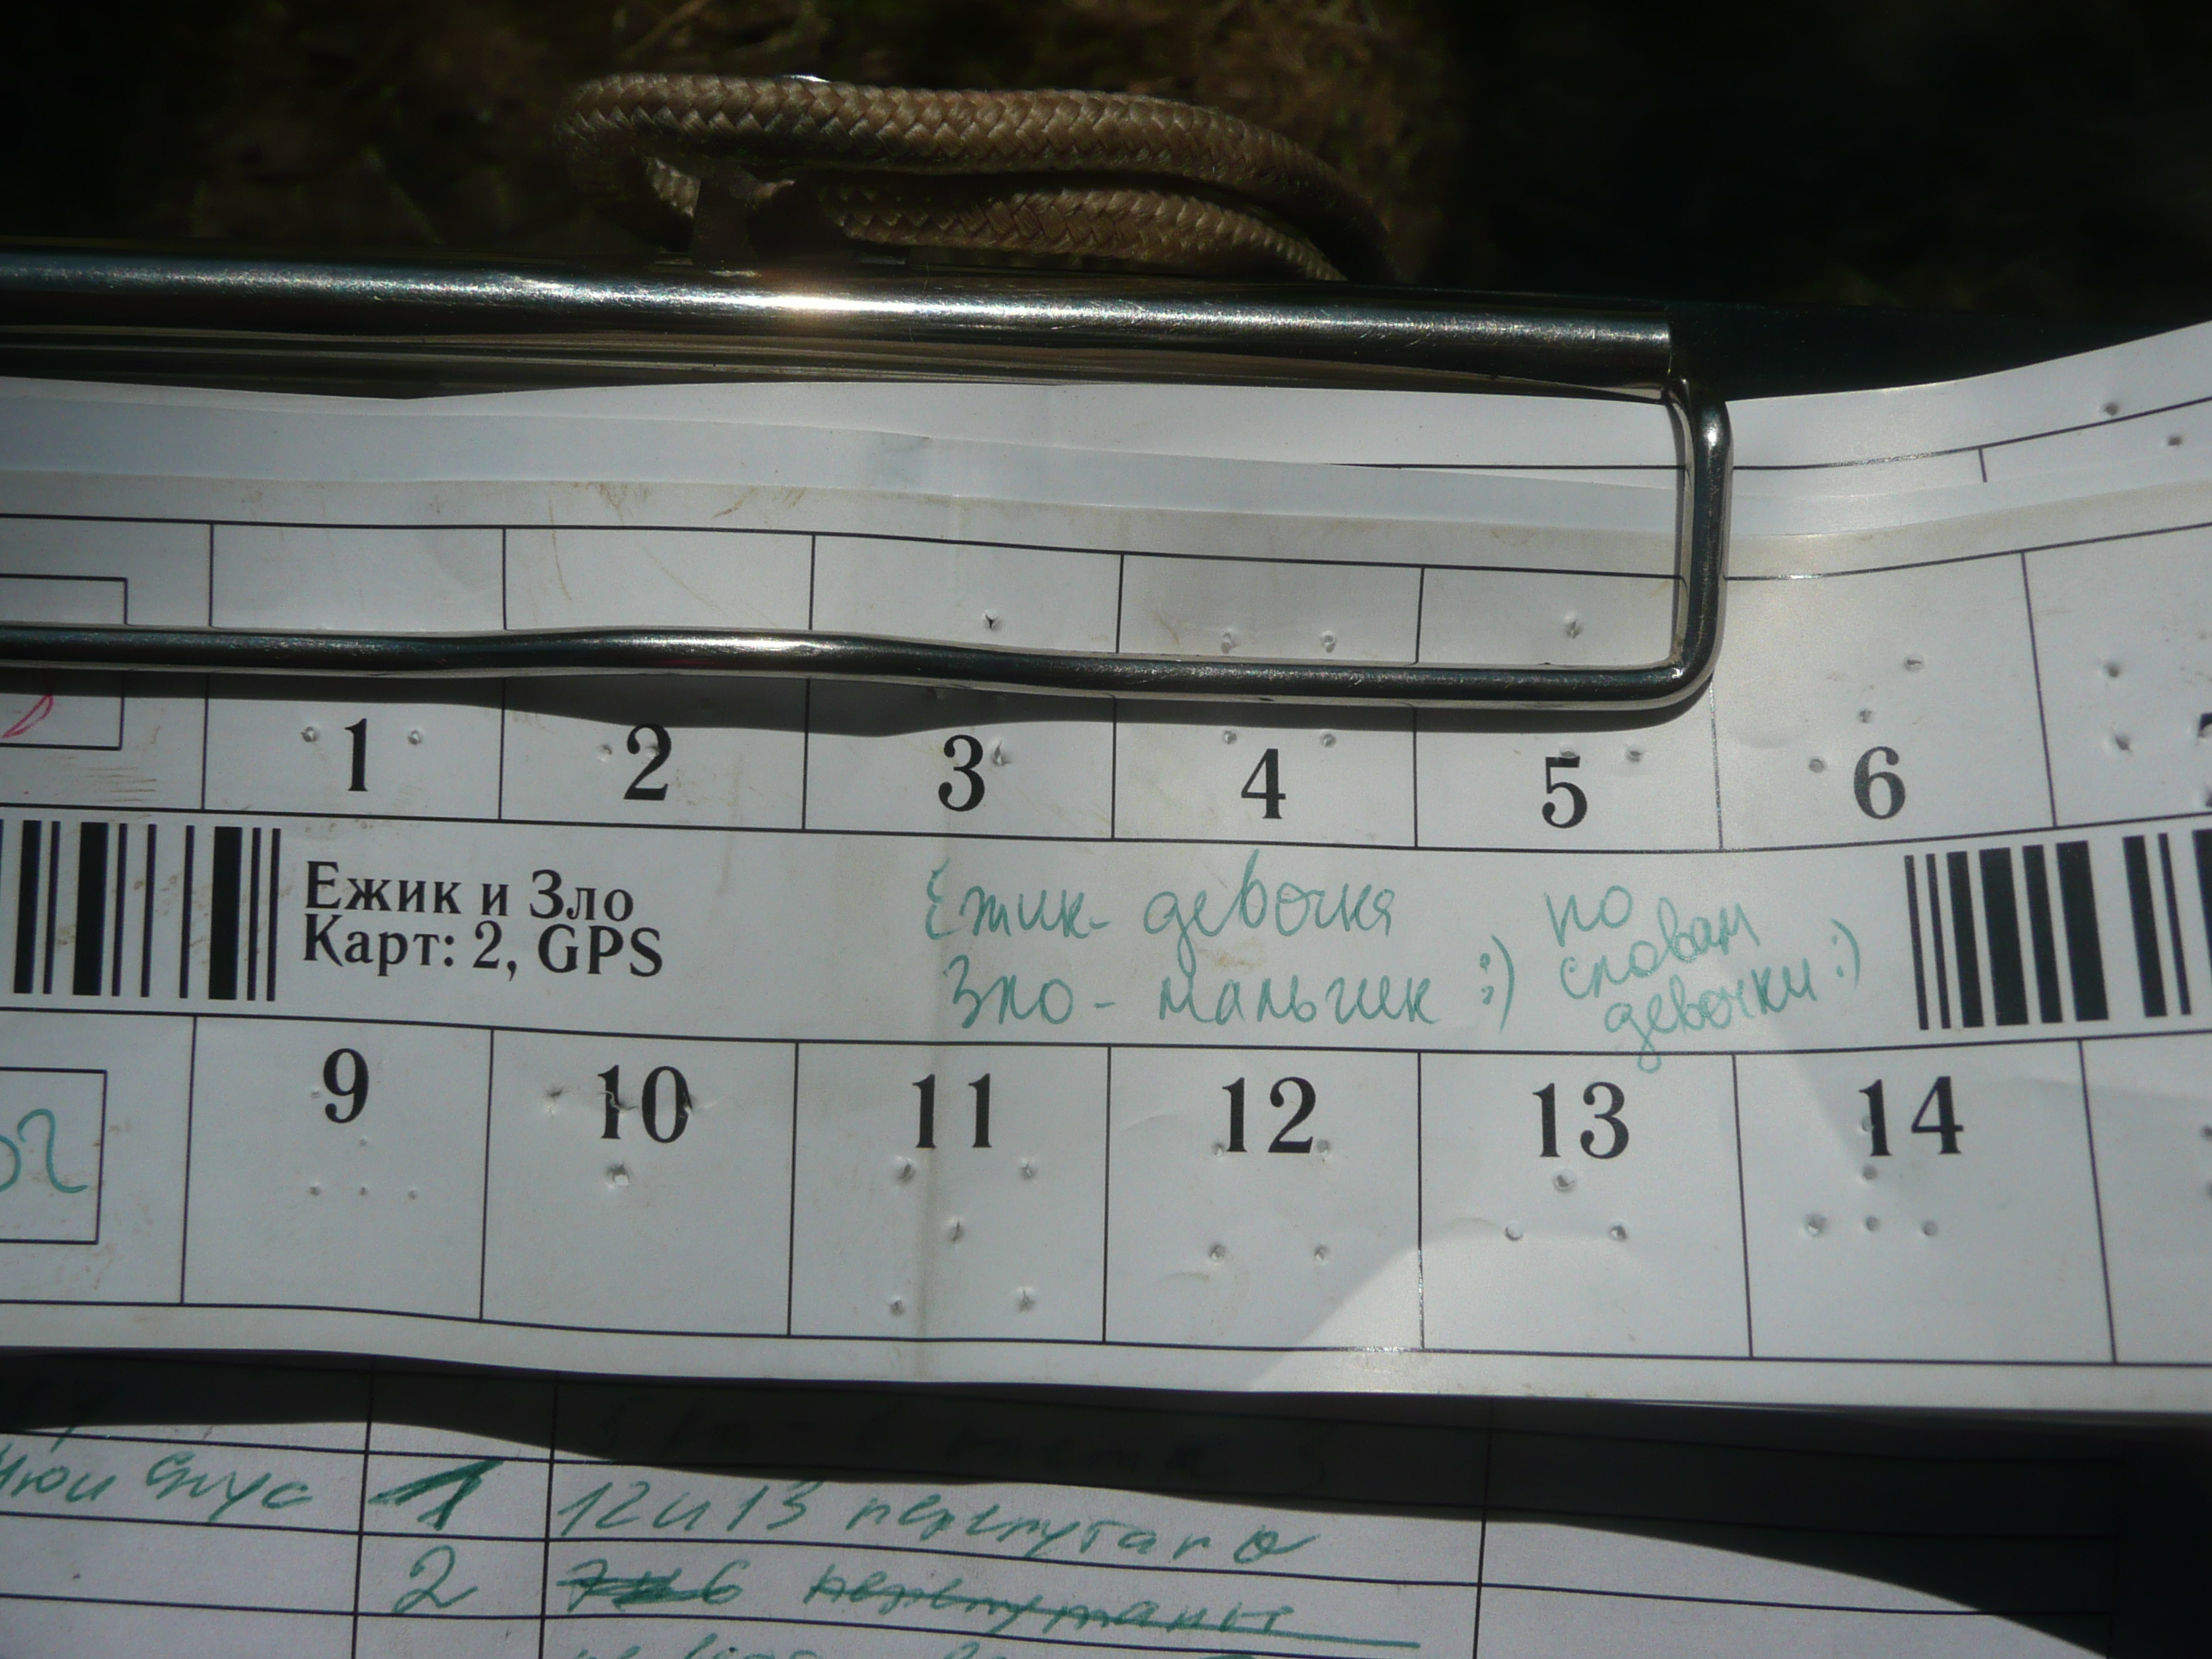 1 2 3 4 5 6
Ежик и Зло
Карт: 2, GPS
Ежик - девочка
Зло - мальчик :)
по
словам
девочки :)
9 10 11 12 13 14
1 12 и 13 перепутано
2 перепутаны